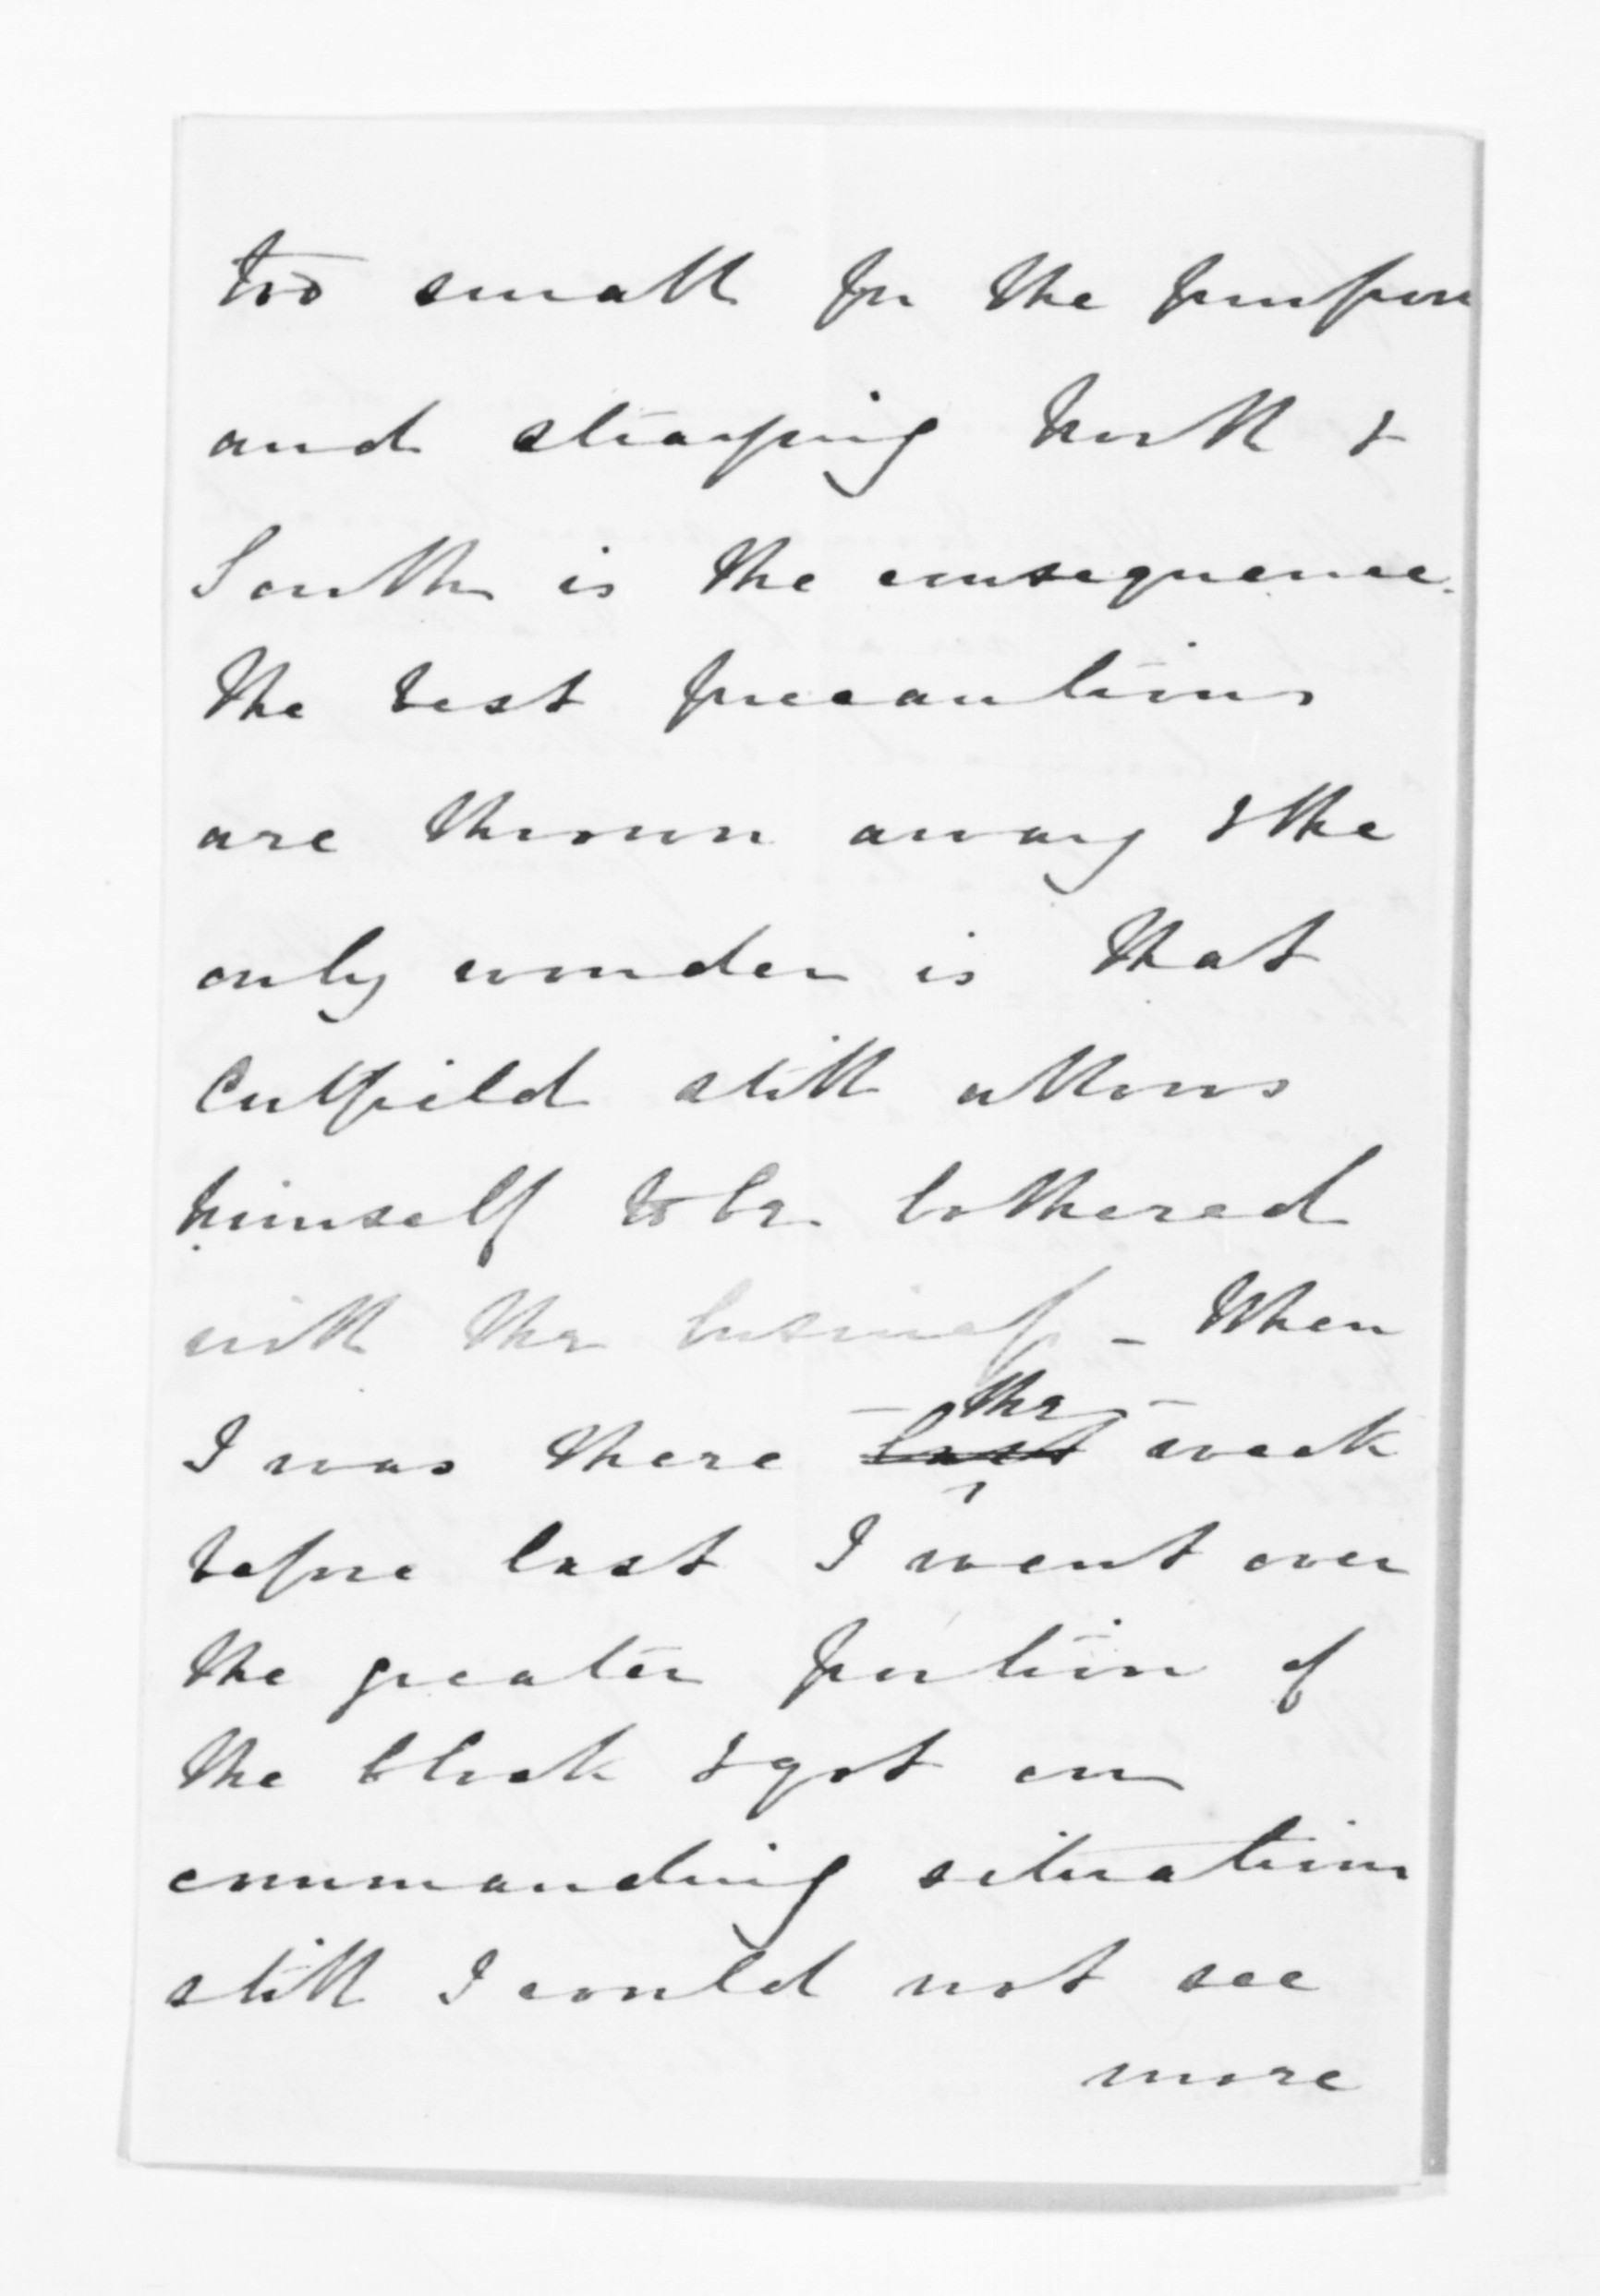 too small for the purpose
and straying North &
South is the consequence.
The best precautions
are thrown away & the
only wonder is that
Cutfield still allows
himself to be bothered
with the business – When
I was there – the – last week
before last I went over
the greater portion of
the block & got on
commanding situations
still I could not see
more